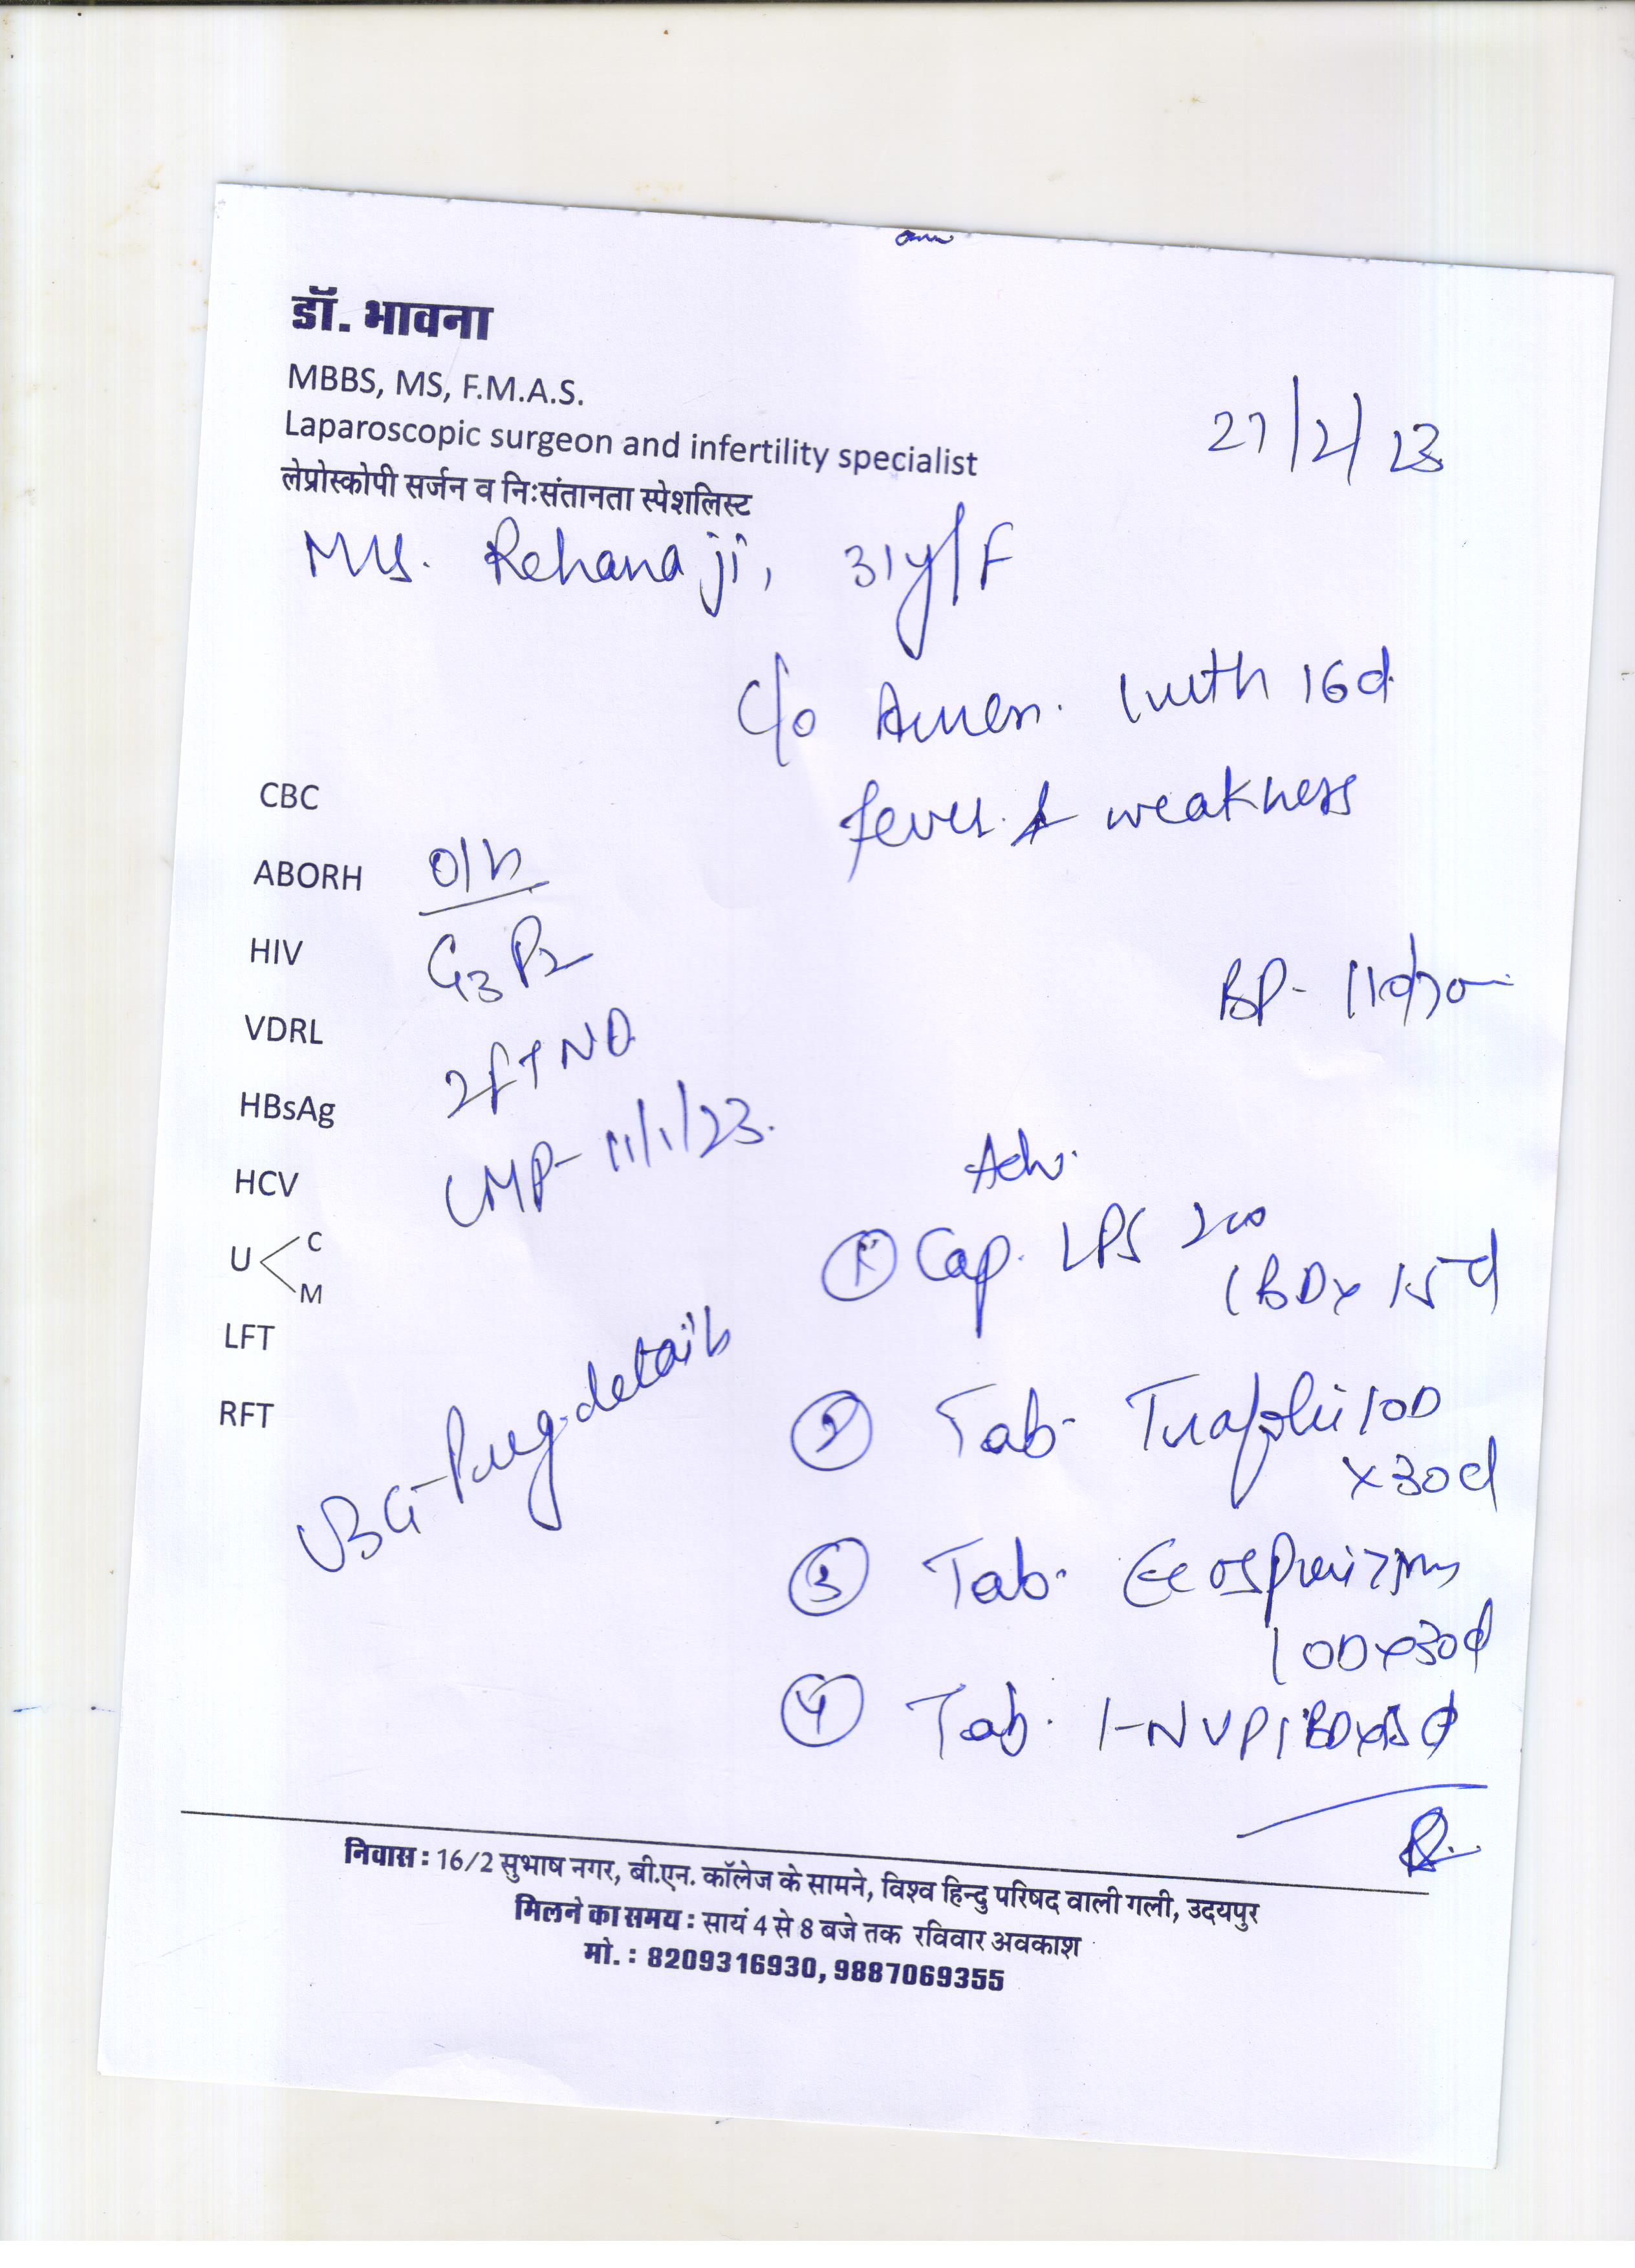 डॉ. भावना
MBBS, MS, F.M.A.S.
Laparoscopic surgeon and infertility specialist
लेप्रोस्कोपी सर्जन व निःसंतानता स्पेशलिस्ट
27/2/23
Mrs. Rehana ji, 31y/F
c/o Amen. 1mth 16d
fever & weakness
CBC
ABORH
HIV
VDRL
HBsAg
HCV
U < C
M
LFT
RFT
O/h
G3P2
2FTND
LMP- 11/1/23.
USG-Preg. details
BP- 110/70
Adv.
① Cap. LPS 200
1BDx15d
② Tab- 1OD
x30d
③ Tab. Ecosprin 75mg
1ODx30d
④ Tab. 1-NVP 1BDx15d
निवास : 16/2 सुभाष नगर, बी.एन. कॉलेज के सामने, विश्व हिन्दु परिषद वाली गली, उदयपुर
मिलने का समय : सायं 4 से 8 बजे तक रविवार अवकाश
मो. : 8209316930, 9887069355